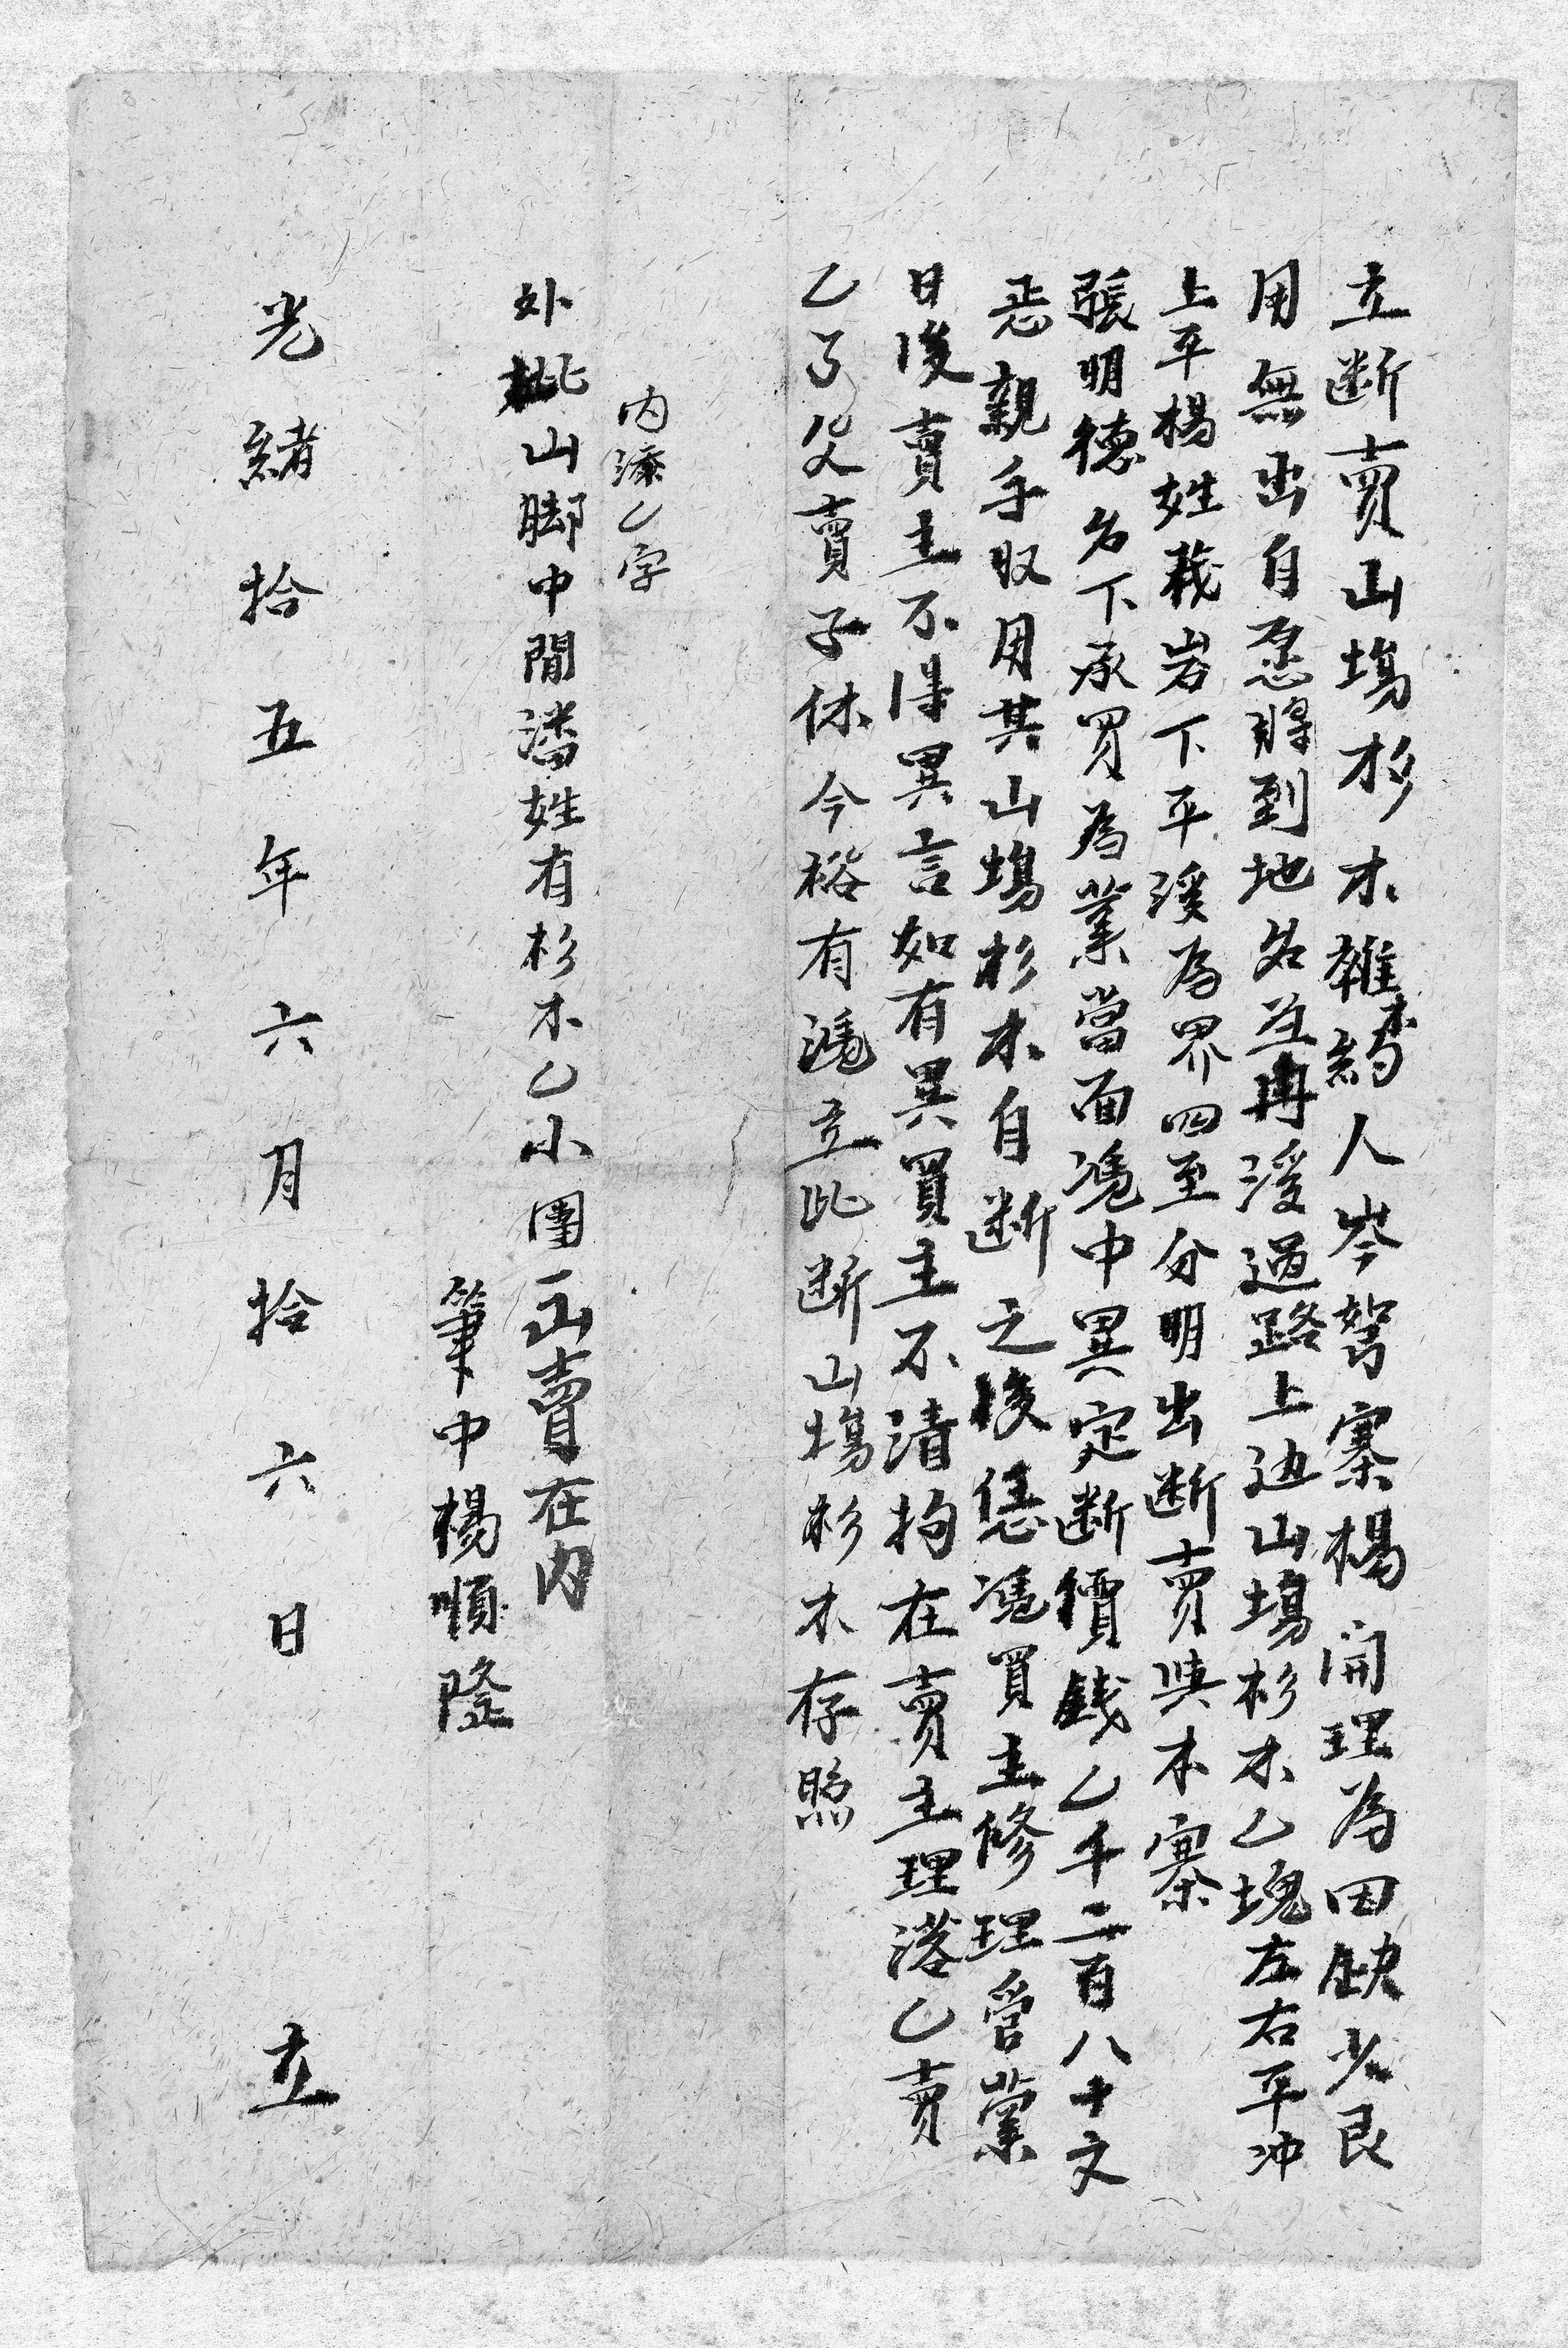 立断賣山塲杉木雜木約人岑努寨楊開理為因缺少艮
用無出自愿將到地名並冉溪過路上边山塲杉木乙塊左右平冲
上平楊姓栽岩下平溪為界四至分明出断賣與本寨
張明德名下承買為業當面凴中異定断價錢乙千二百八十文
恶親手收用其山塲杉木自断之後恁凴買主修理管業
日後賣主不得異言如有異買主不清拘在賣主理落乙賣
乙了父賣子休今裕有凴立此断山塲杉木存照
内添乙字
外批山脚中間潘姓有杉木乙小團一山賣在内
筆中楊順隆
光緒拾五年六月拾六日立